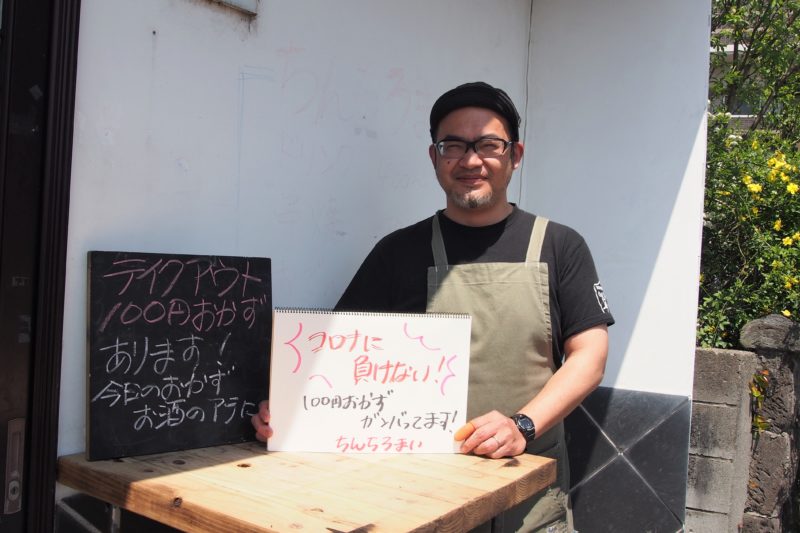 テイクアウト
100円おかず
あります!
今日のおかず
お酒のアテに
コロナに
負けない!
100円おかず
ガンバってます!
ちんちろまい